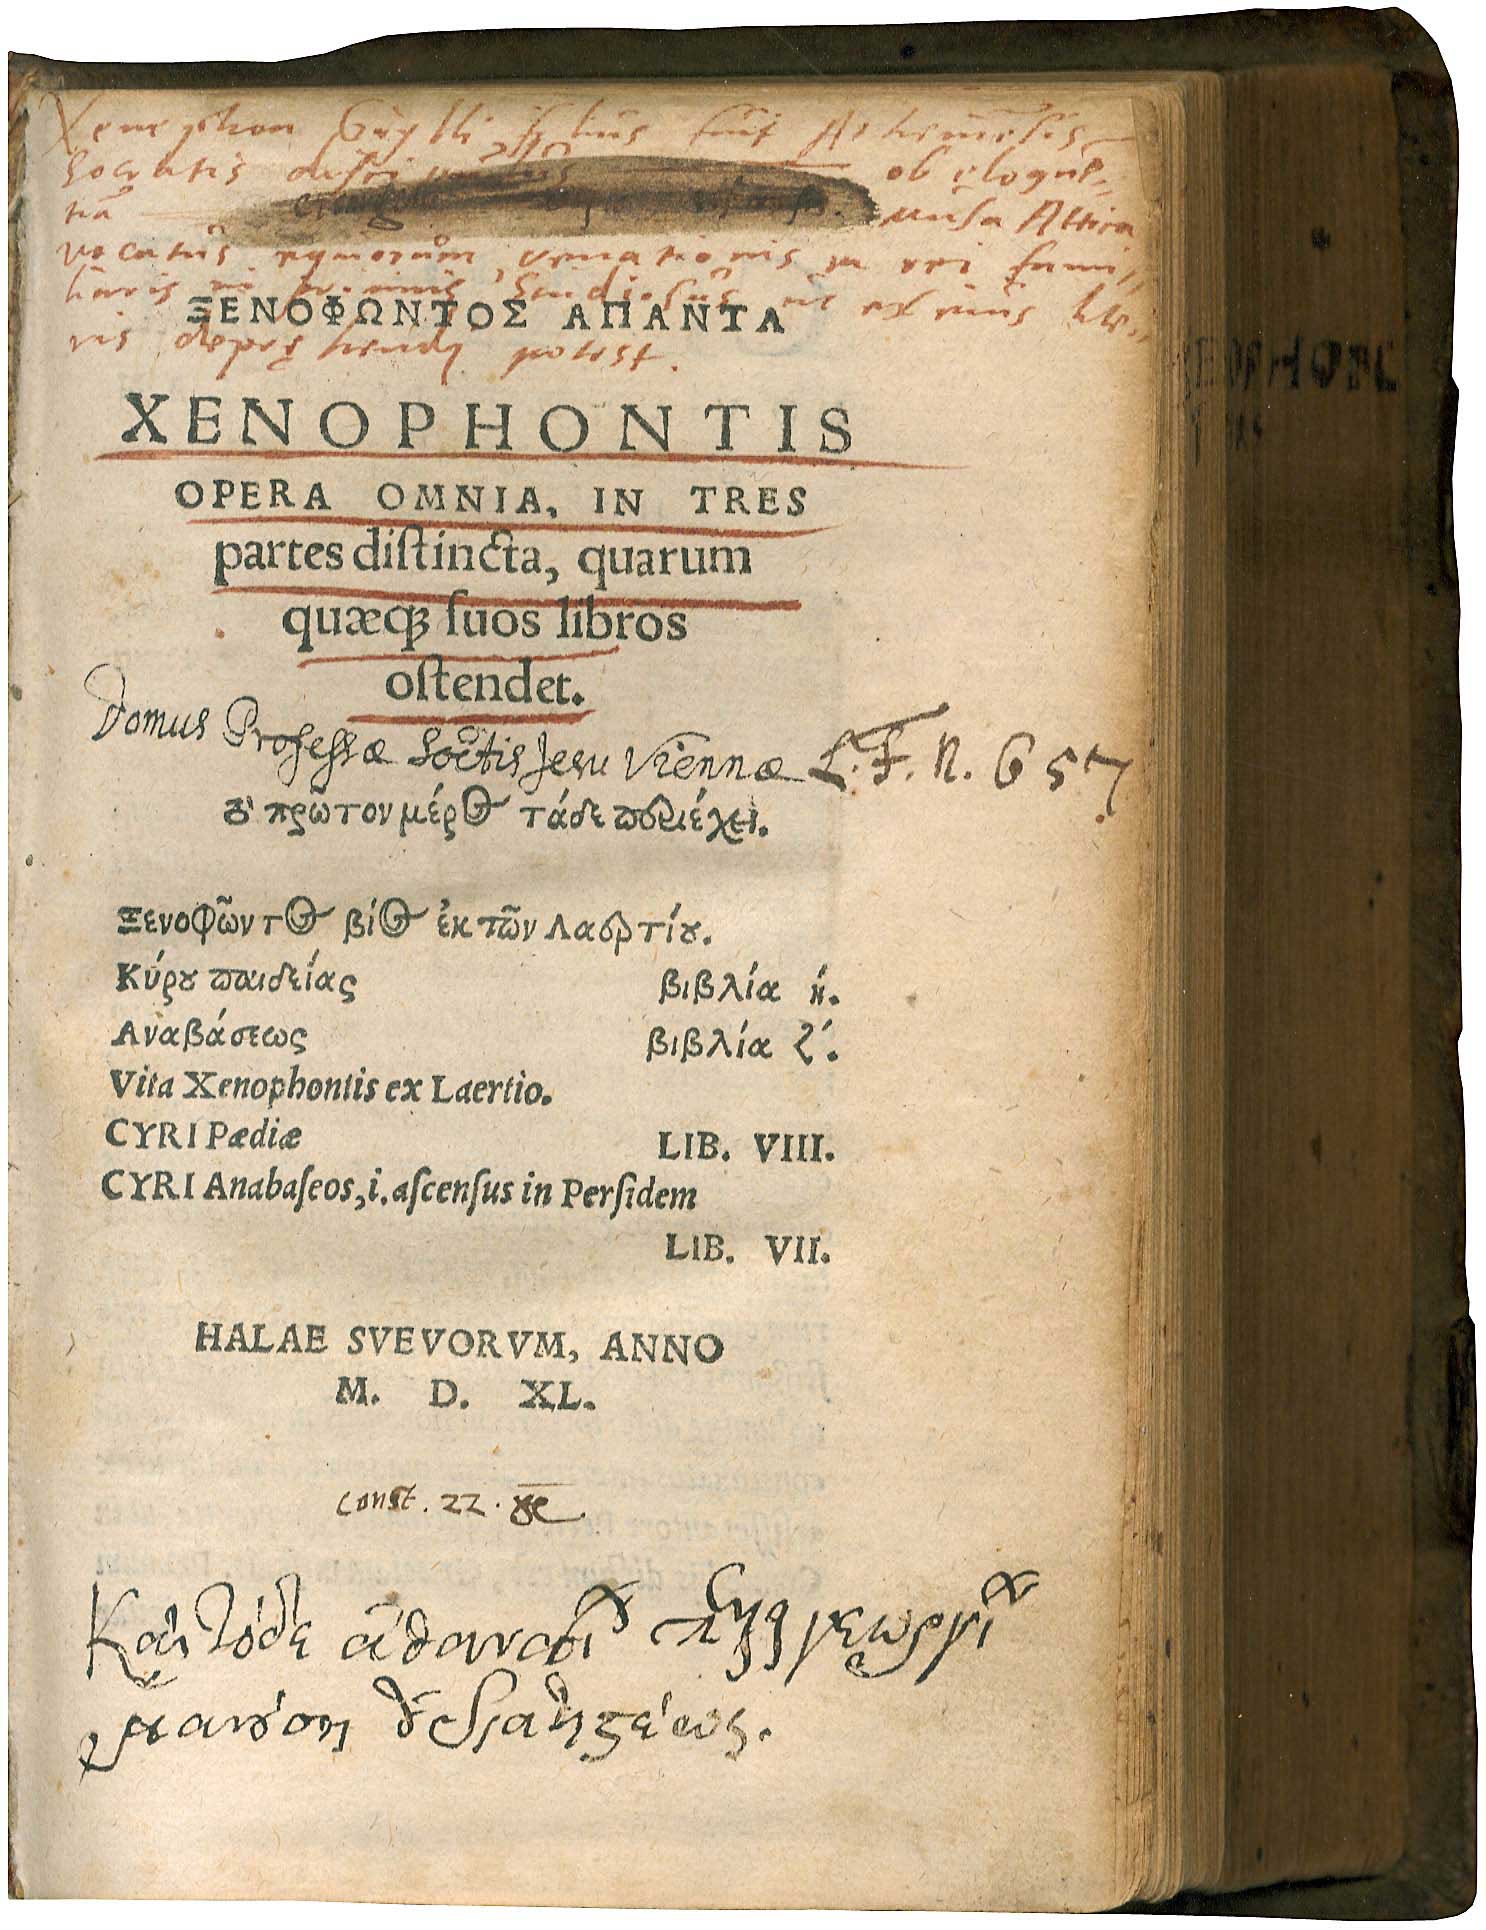 Xenophon Grylli filius fuit Atheniēsis
Socratis ob eloquē-
tiā musa Attica
vocatus equorum venationis rei fami-
liaris in primis studiosus ut ex eius lite-
ris deprehendi potest.
ΞΕΝΟΦΩΝΤΟΣ ΑΠΑΝΤΑ
XENOPHONTIS
OPERA OMNIA, IN TRES
partes diſtincta, quarum
quæqꝫ ſuos libros
oſtendet.
Domus Professæ Soctis Jesu Viennæ L. F. N. 657
πρῶτον μέρος τάδε περιέχει.
Ξενοφῶντος βίος ἐκ τῶν Λαερτίου.
Κύρου παιδείας βιβλία ή.
Αναβάσεως βιβλία ζ΄.
Vita Xenophontis ex Laertio.
CYRI Pædiæ LIB. VIII.
CYRI Anabaſeos, i. aſcenſus in Perſidem
LIB. VII.
HALAE SVEVORVM, ANNO
M. D. XL.
const. 22.
Καὶ τόδε